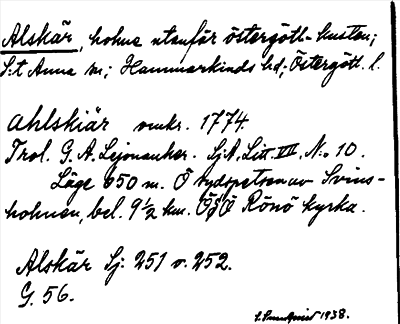 Alskär, holme utanför östergötl. kusten;
S:t Anna sn; Hammarkinds hd; Östergötl. l.
Ahlskiär omkr. 1774.
Trol. G. A. Lejonanker. SjA, Litt. VII, No 10.
Läge 850 m. Ö sydspetsen av Svins-
holmen, bel. 9½ km. ÖSÖ Rönö kyrka.
Alskär Sj: 251 o. 252.
G. 56.
1938.